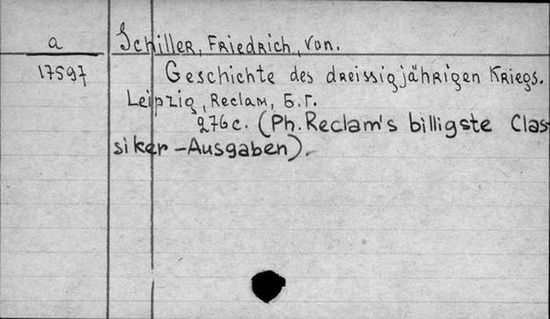 a
17597
Schiller, Friedrich, von.
Geschichte des dreissigjährigen Kriegs.
Leipzig, Reclam, Б.г.
276 с. (Ph. Reclam's billigste Clas-
siker-Ausgaben).